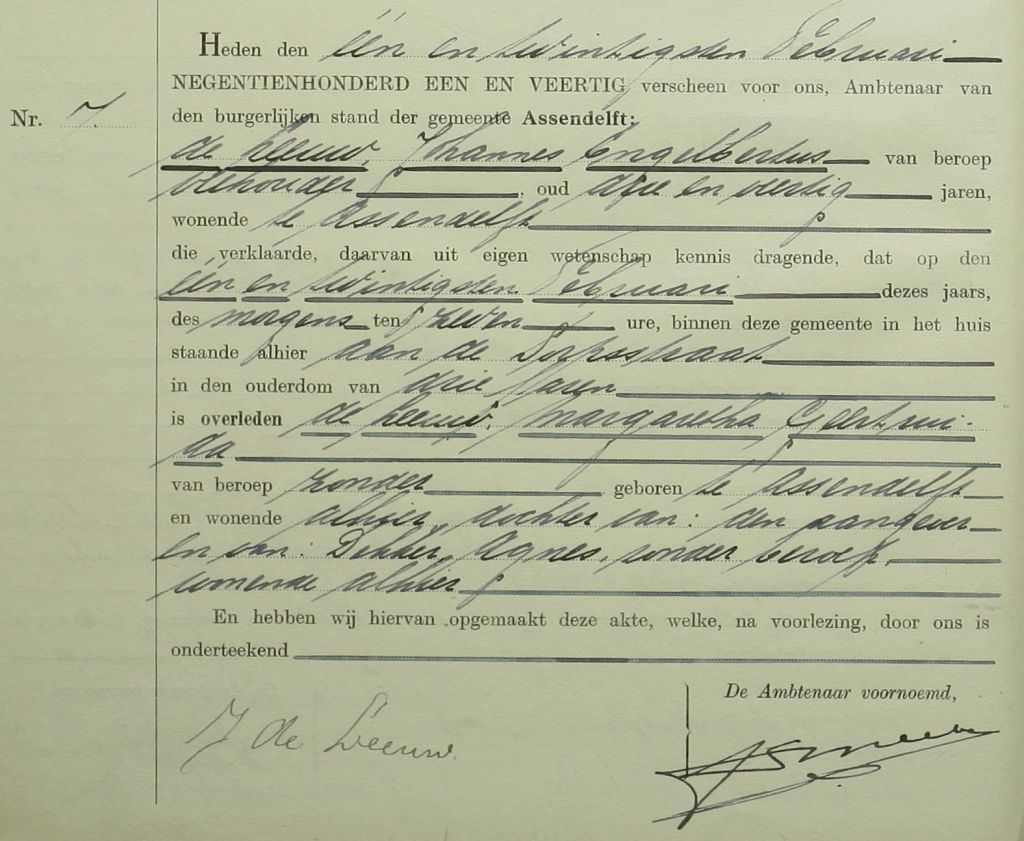 Heden den één en twintigsten Februari
NEGENTIENHONDERD EEN EN VEERTIG verscheen voor ons, Ambtenaar van
Nr. 7
den burgerlijken stand der gemeente Assendelft:
de Leeuw, Johannes Engelbertus van beroep
veehouder, oud drie en veertig jaren,
wonende te Assendelft
die verklaarde, daarvan uit eigen wetenschap kennis dragende, dat op den
één en twintigsten Februari dezes jaars,
des morgens ten zeven ure, binnen deze gemeente in het huis
staande alhier aan de Dorpsstraat
in den ouderdom van drie jaren
is overleden de Leeuw, Margaretha Geertrui-
da
van beroep zonder geboren te Assendelft
en wonende alhier, dochter van: den aangever
en van: Dekker, Agnes, zonder beroep,
wonende alhier
En hebben wij hiervan opgemaakt deze akte, welke, na voorlezing, door ons is
onderteekend
De Ambtenaar voornoemd,
J de Leeuw